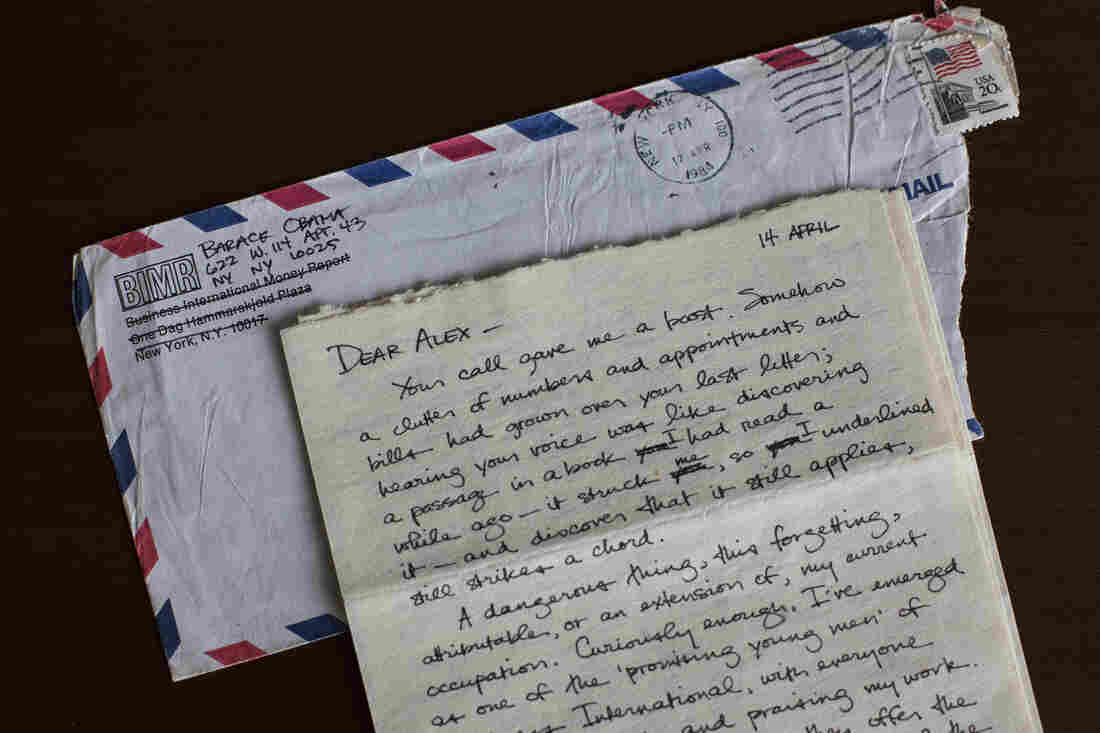 USA
20c
NEW YORK NY 100
PM
17 APR
1984
MAIL
BARACK OBAMA
622 W. 114 APT. 43
NY NY 10025
BIMR
Business International Money Report
One Dag Hammarskjold Plaza
New York, N.Y. 10017
14 APRIL
DEAR ALEX –
Your call gave me a boost. Somehow
a clutter of numbers and appointments and
bills had grown over your last letter;
hearing your voice was like discovering
a passage in a book I had read a
while ago – it struck me, so I underlined
it – and discover that it still applies,
still strikes a chord.
A dangerous thing, this forgetting,
attributable, or an extension of, my current
occupation. Curiously enough, I've emerged
as one of the 'promising young men' of
International, with everyone
and praising my work.
they offer the
the